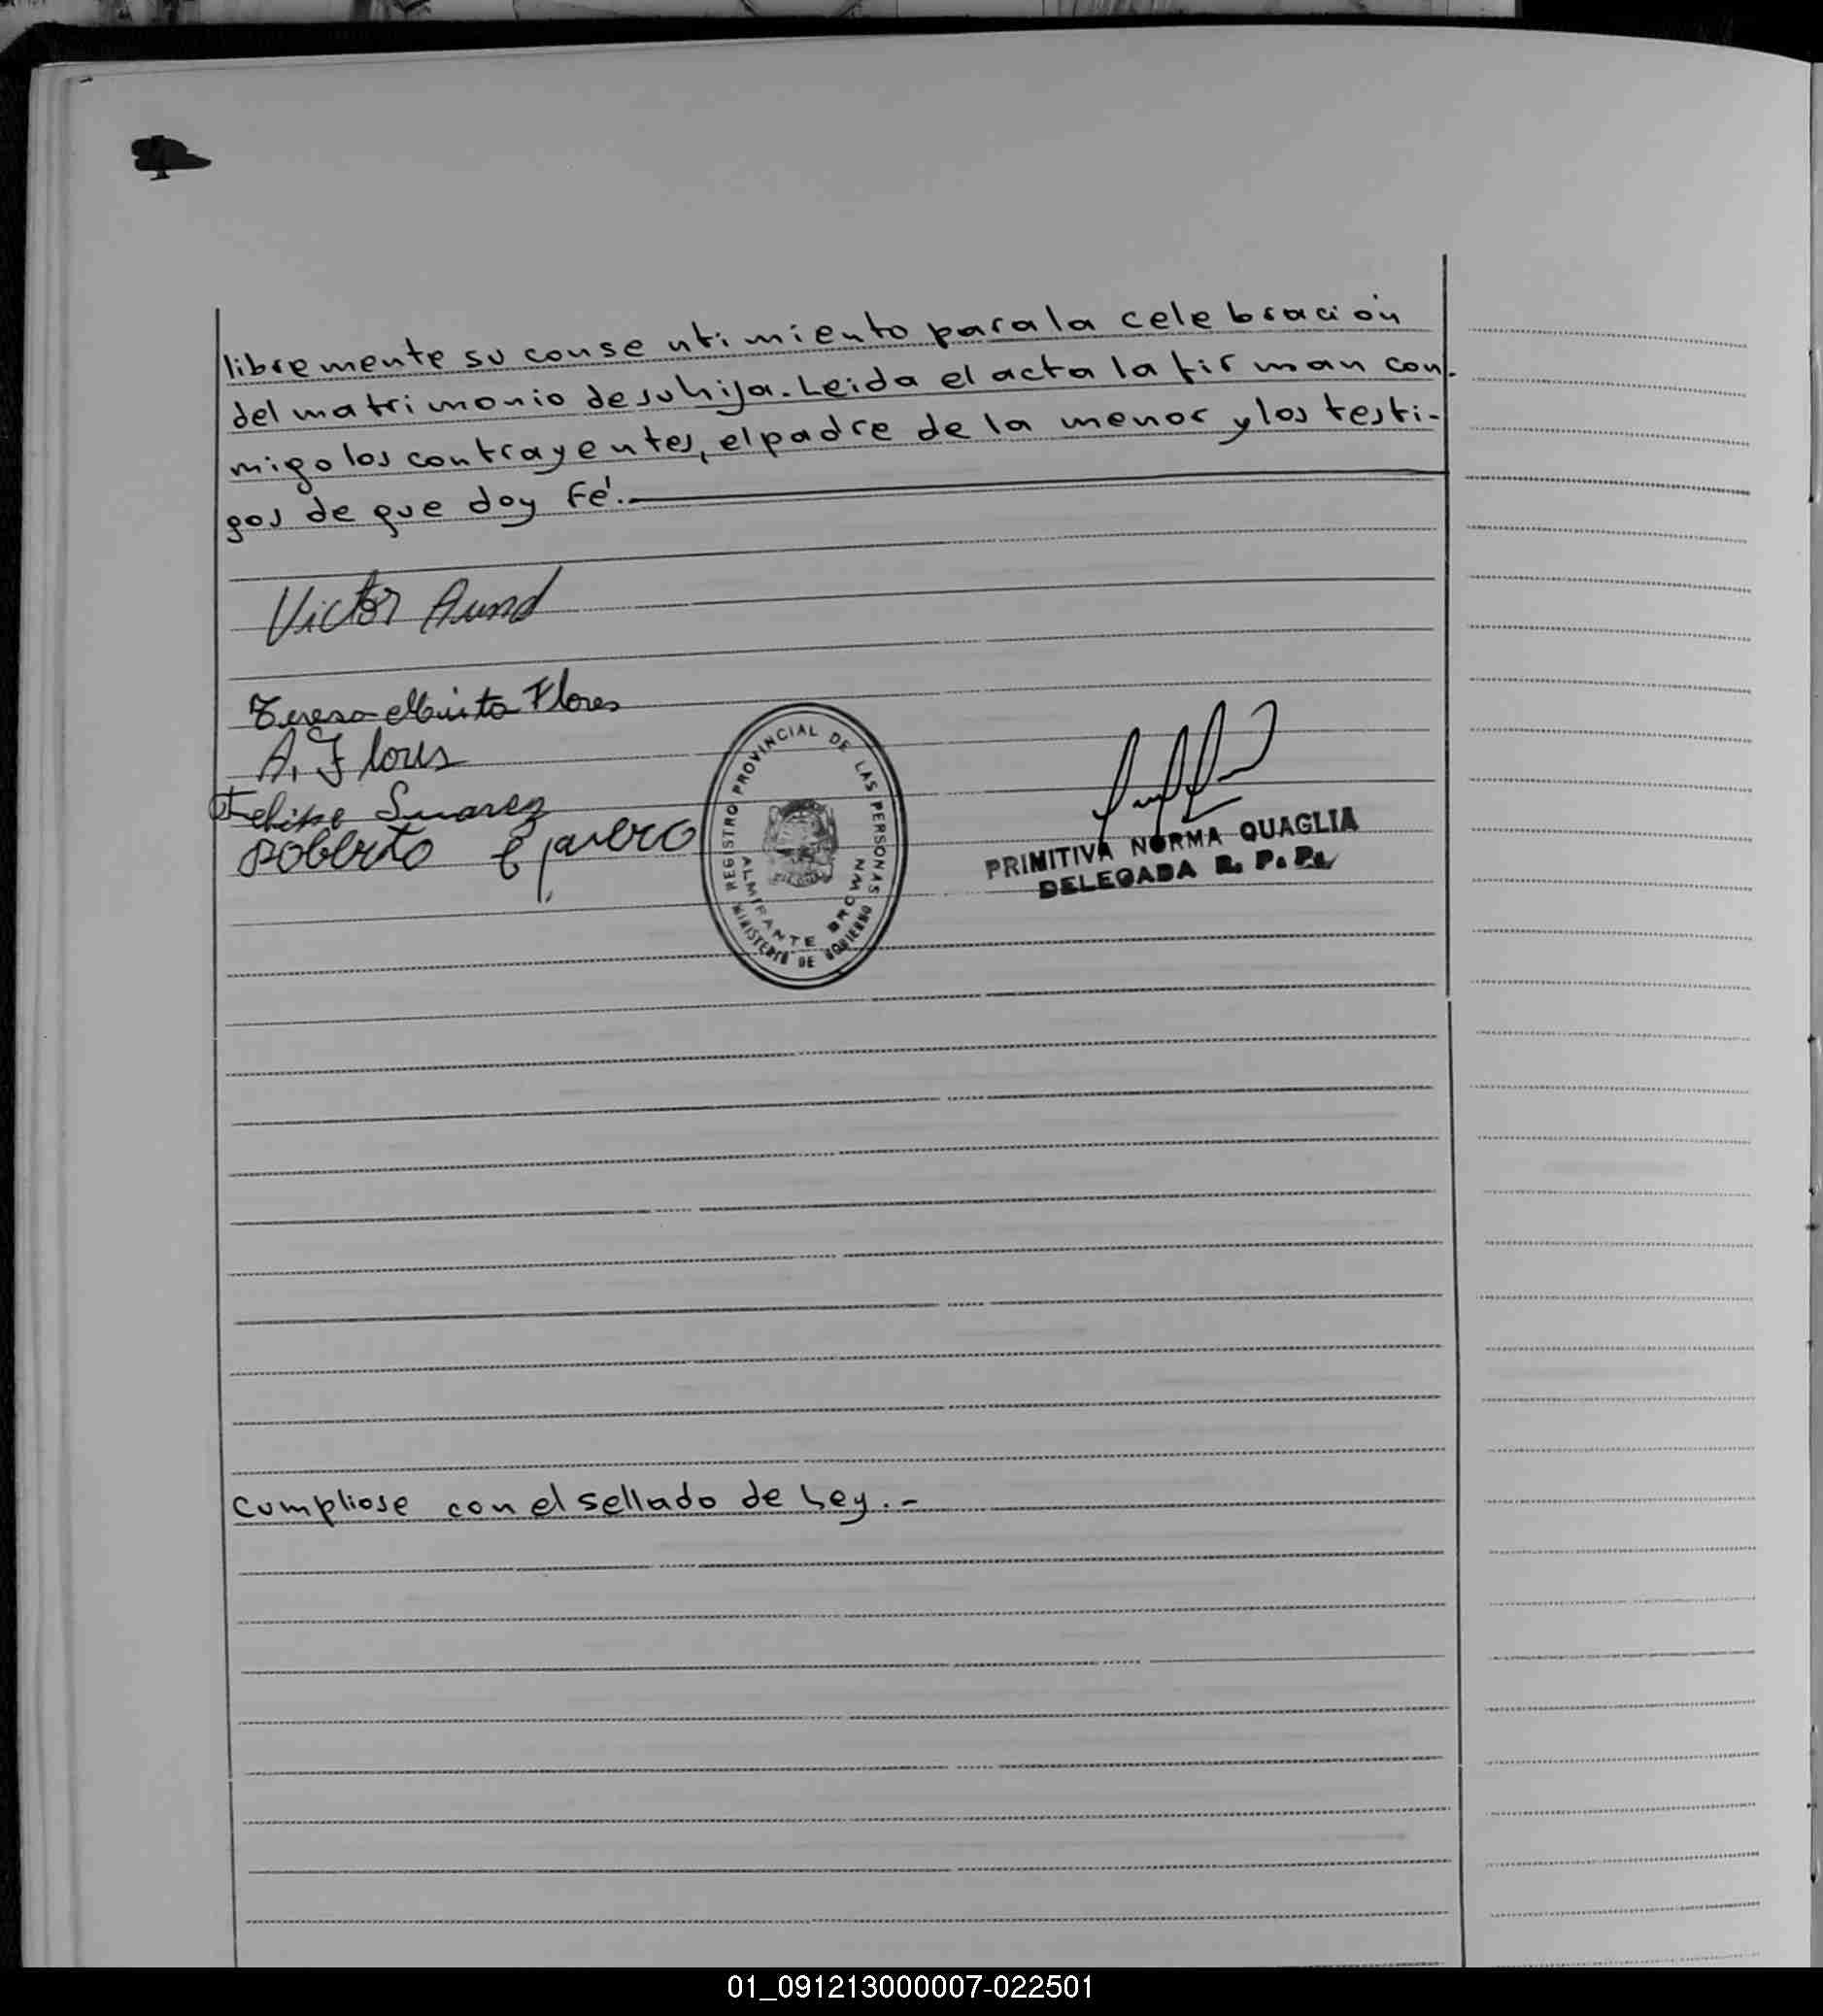 libremente su consentimiento para la celebración
del matrimonio de su hija. Leida el acta la firman con-
migo los contrayentes, el padre de la menor y los testi-
gos de que doy Fé.-
Victor
Teresa Flores
A. Flores
Felipe Suarez
Roberto
REGISTRO PROVINCIAL DE LAS PERSONAS
ALMIRANTE BROWN
MINISTERIO DE GOBIERNO
PRIMITIVA NORMA QUAGLIA
DELEGADA R. P. P.
Cumpliose con el sellado de Ley.-
01_091213000007-022501